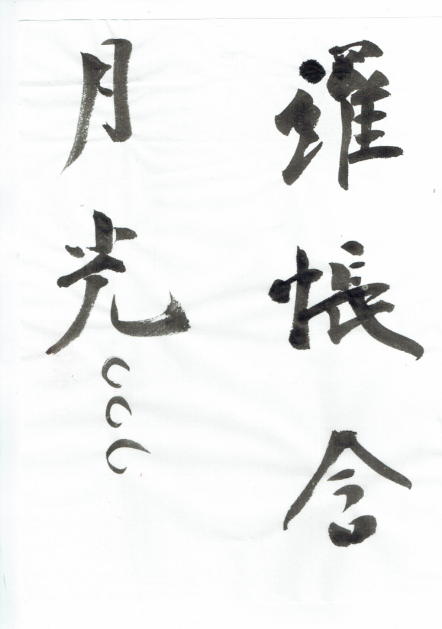 羅帳含
月光